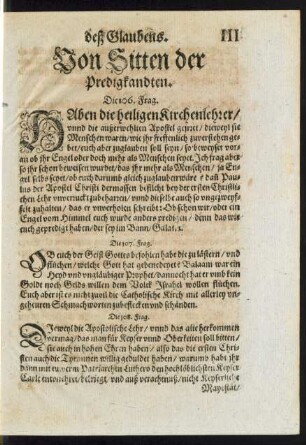 deß Glaubens. III
Von Sitten der
Predigkandten.
Die 106. Frag.
HAben die heiligen Kirchenlehrer/
vnnd die außerwehlten Apostel geirret/ dieweyl sie
Menschen waren/ wie jhr freßentlich zuuerstehen ge-
bet/ euch aber zuglauben soll seyn/ so beweyset vor-
an ob jhr Engel oder doch mehr als Menschen seyet. Ich frag aber
so jhr schon beweisen wurdet/ das jhr mehr als Menschen/ ja En-
gel selbs seyet/ ob euch darumb gleich zuglauben were? daß Pau-
lus der Apostel Christi dermassen besticht bey der ersten Christli-
chen Lehr vnuerruckt zubeharren/ vnnd dieselb auch so vngezweyf-
let zuhalten/ das er vnuerholen schreibt: Ob schon wir/ oder ein
Engel vom Himmel euch wurde anders predigen/ denn das wir
euch geprediget haben/ der sey im Bann/ Galat. 1.
Die 107. Frag.
OB euch der Geist Gottes befohlen habe die zu lästern/ vnd
fluchen/ welche Gott hat gebenedeyet? Balaam war ein
Heyd vnd vngläubiger Prophet/ dannocht hat er vmb kein
Goldt noch Gelds willen dem Volck Israhel wollen fluchen.
Euch aber ist es nicht zuuil die Catholische Kirch mit allerley vn-
geheuren Schmachworten zubeflecken vnd schänden.
Die 108. Frag.
DIeweyl die Apostolische Lehr/ vnnd das alte herkommen
vermag/ das man für Keyser vnnd Oberkeiten soll bitten/
sie auch in hohen Ehren haben/ also das die ersten Chri-
sten auch die Tyrannen willig geduldet haben/ warumb habt jhr
dann mit ewrem Patriarchen Luthero den hochlöblichsten Keyser
Carle entvnehret/ bekriegt/ vnd auß verachtnuß/ nicht Keyserliche
Mayestat/